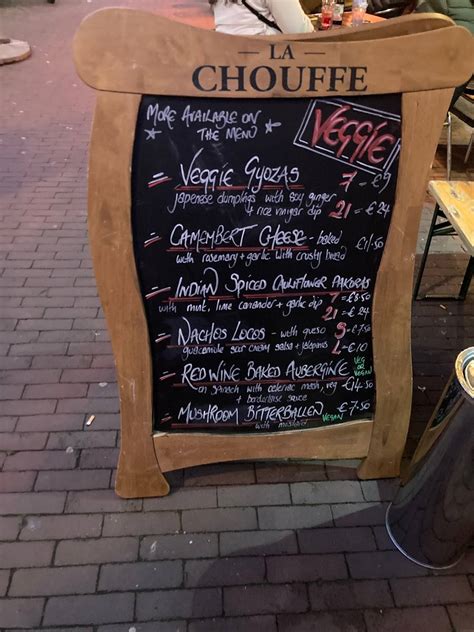 LA
CHOUFFE
MORE AVAILABLE ON
THE MENU
VEGGIE
= VEGGIE GYOZAS 7 = £9
Japanese dumplings with soy ginger
+ rice vinegar dip 21 = £24
= CAMEMBERT CHEESE - baked
with rosemary + garlic with crusty bread
= INDIAN SPICED CAULIFLOWER PAKORAS
with mint, lime coriander + garlic dip 7 = £8.50
21 = £24
= NACHOS LOCOS - with queso S = £7.50
guacamole sour cream salsa + jalapenos L = £10
= RED WINE BAKED AUBERGINE VEG OR VEGAN
on spinach with celeriac mash, veg £14.50
+ bordelaise sauce
= MUSHROOM BITTERBALLEN £7.50
with mustard VEGAN